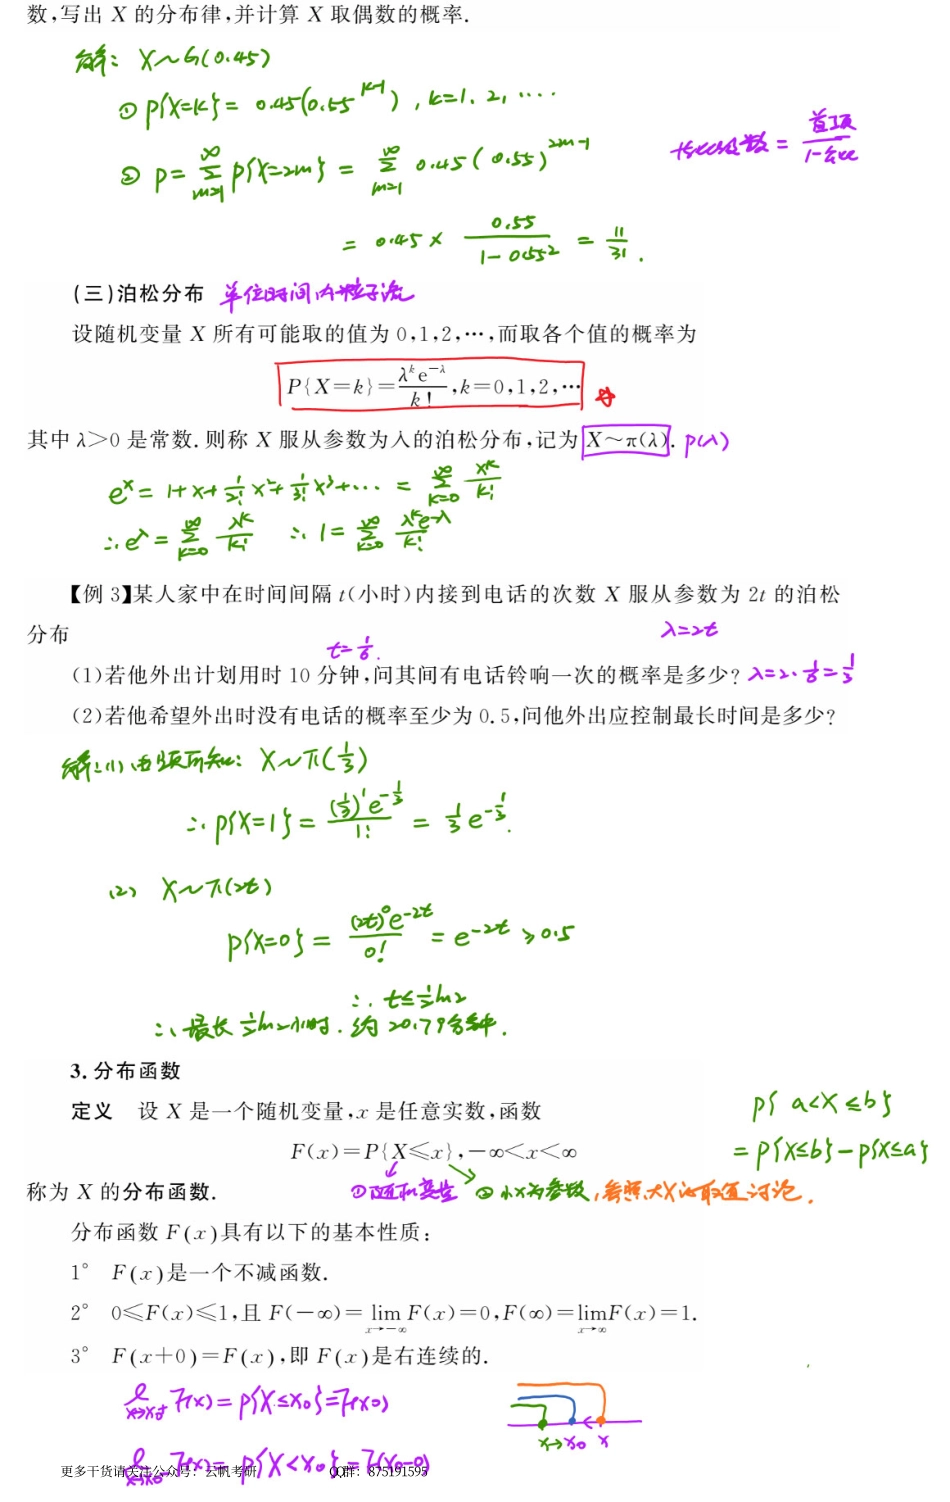 数,写出 X 的分布律,并计算 X 取偶数的概率.
解: X~G(0.45)
① P{X=k} = 0.45(0.55^{k-1}), k=1, 2, ....
② P = ∑_{m=1}^{∞} P{X=2m} = ∑_{m=1}^{∞} 0.45(0.55)^{2m-1}
等比级数 = 首项/(1-公比)
= 0.45 × 0.55/(1-0.55²) = 11/31.
(三)泊松分布 单位时间内粒子流
设随机变量 X 所有可能取的值为 0,1,2,…,而取各个值的概率为
P{X=k}=λ^k e^{-λ}/k!,k=0,1,2,…
其中 λ>0 是常数.则称 X 服从参数为入的泊松分布,记为 X~π(λ). P(λ)
e^x = 1+x+1/2! x²+1/3! x³+... = ∑_{k=0}^{∞} x^k/k!
∴ e^λ = ∑_{k=0}^{∞} λ^k/k! ∴ 1 = ∑_{k=0}^{∞} λ^k e^{-λ}/k!
【例 3】某人家中在时间间隔 t(小时)内接到电话的次数 X 服从参数为 2t 的泊松
分布
λ=2t
t=1/6.
(1)若他外出计划用时 10 分钟,问其间有电话铃响一次的概率是多少? λ=2·1/6=1/3
(2)若他希望外出时没有电话的概率至少为 0.5,问他外出应控制最长时间是多少?
解:(1) 由题可知: X~π(1/3)
∴ P{X=1} = (1/3)^1 e^{-1/3}/1! = 1/3 e^{-1/3}.
(2) X~π(2t)
P{X=0} = (2t)^0 e^{-2t}/0! = e^{-2t} ≥ 0.5
∴ t≤1/2 ln2
∴ 最长 1/2 ln2小时. 约 20.79分钟.
3.分布函数
定义 设 X 是一个随机变量,x 是任意实数,函数
P{a<X≤b}
F(x)=P{X≤x},-∞<x<∞
= P{X≤b}-P{X≤a}
称为 X 的分布函数.
①随机变量 ②小x为参数,参照大X的取值讨论.
分布函数 F(x)具有以下的基本性质:
1° F(x)是一个不减函数.
2° 0≤F(x)≤1,且 F(-∞)=lim_{x→-∞} F(x)=0,F(∞)=lim_{x→∞}F(x)=1.
3° F(x+0)=F(x),即 F(x)是右连续的.
l_{x→x₀⁺} F(x) = P{X≤x₀}=F(x₀)
x→x₀ x
l_{x→x₀⁻} F(x) = P{X<x₀} = F(x₀-0)
更多干货请关注公众号:云帆考研 QQ群:875191595